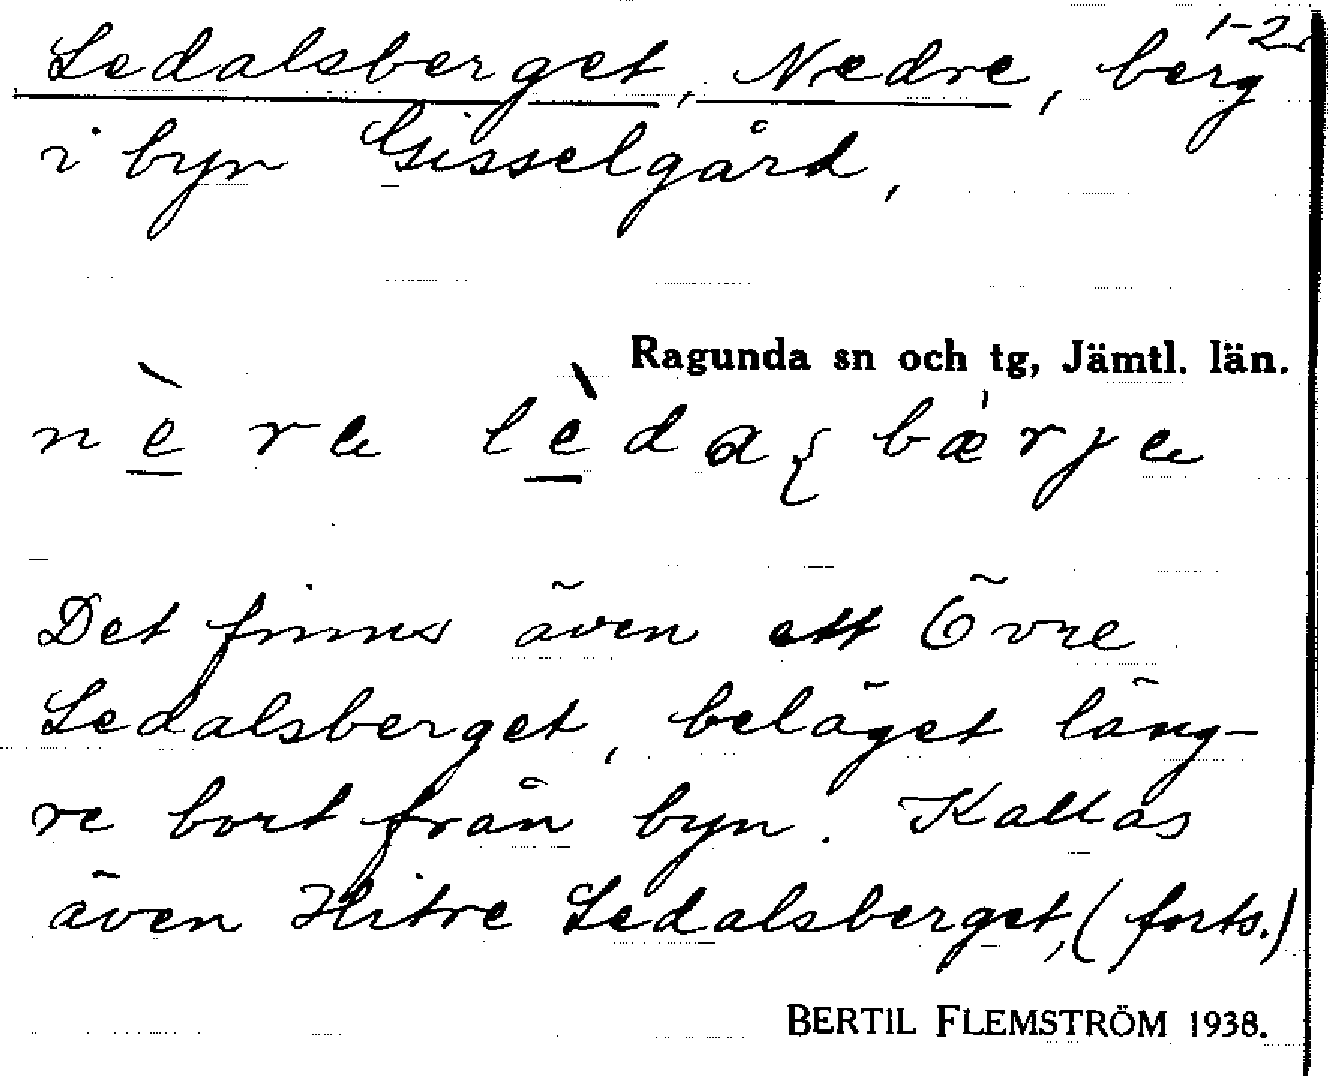 1-2.
Ledalsberget, Nedre, berg
i byn Gisselgård,
Ragunda sn och tg, Jämtl. län.
Det finns även ett Övre
Ledalsberget, beläget läng-
re bort från byn. Kallas
även Hitre Ledalsberget, (forts.)
BERTIL FLEMSTRÖM 1938.